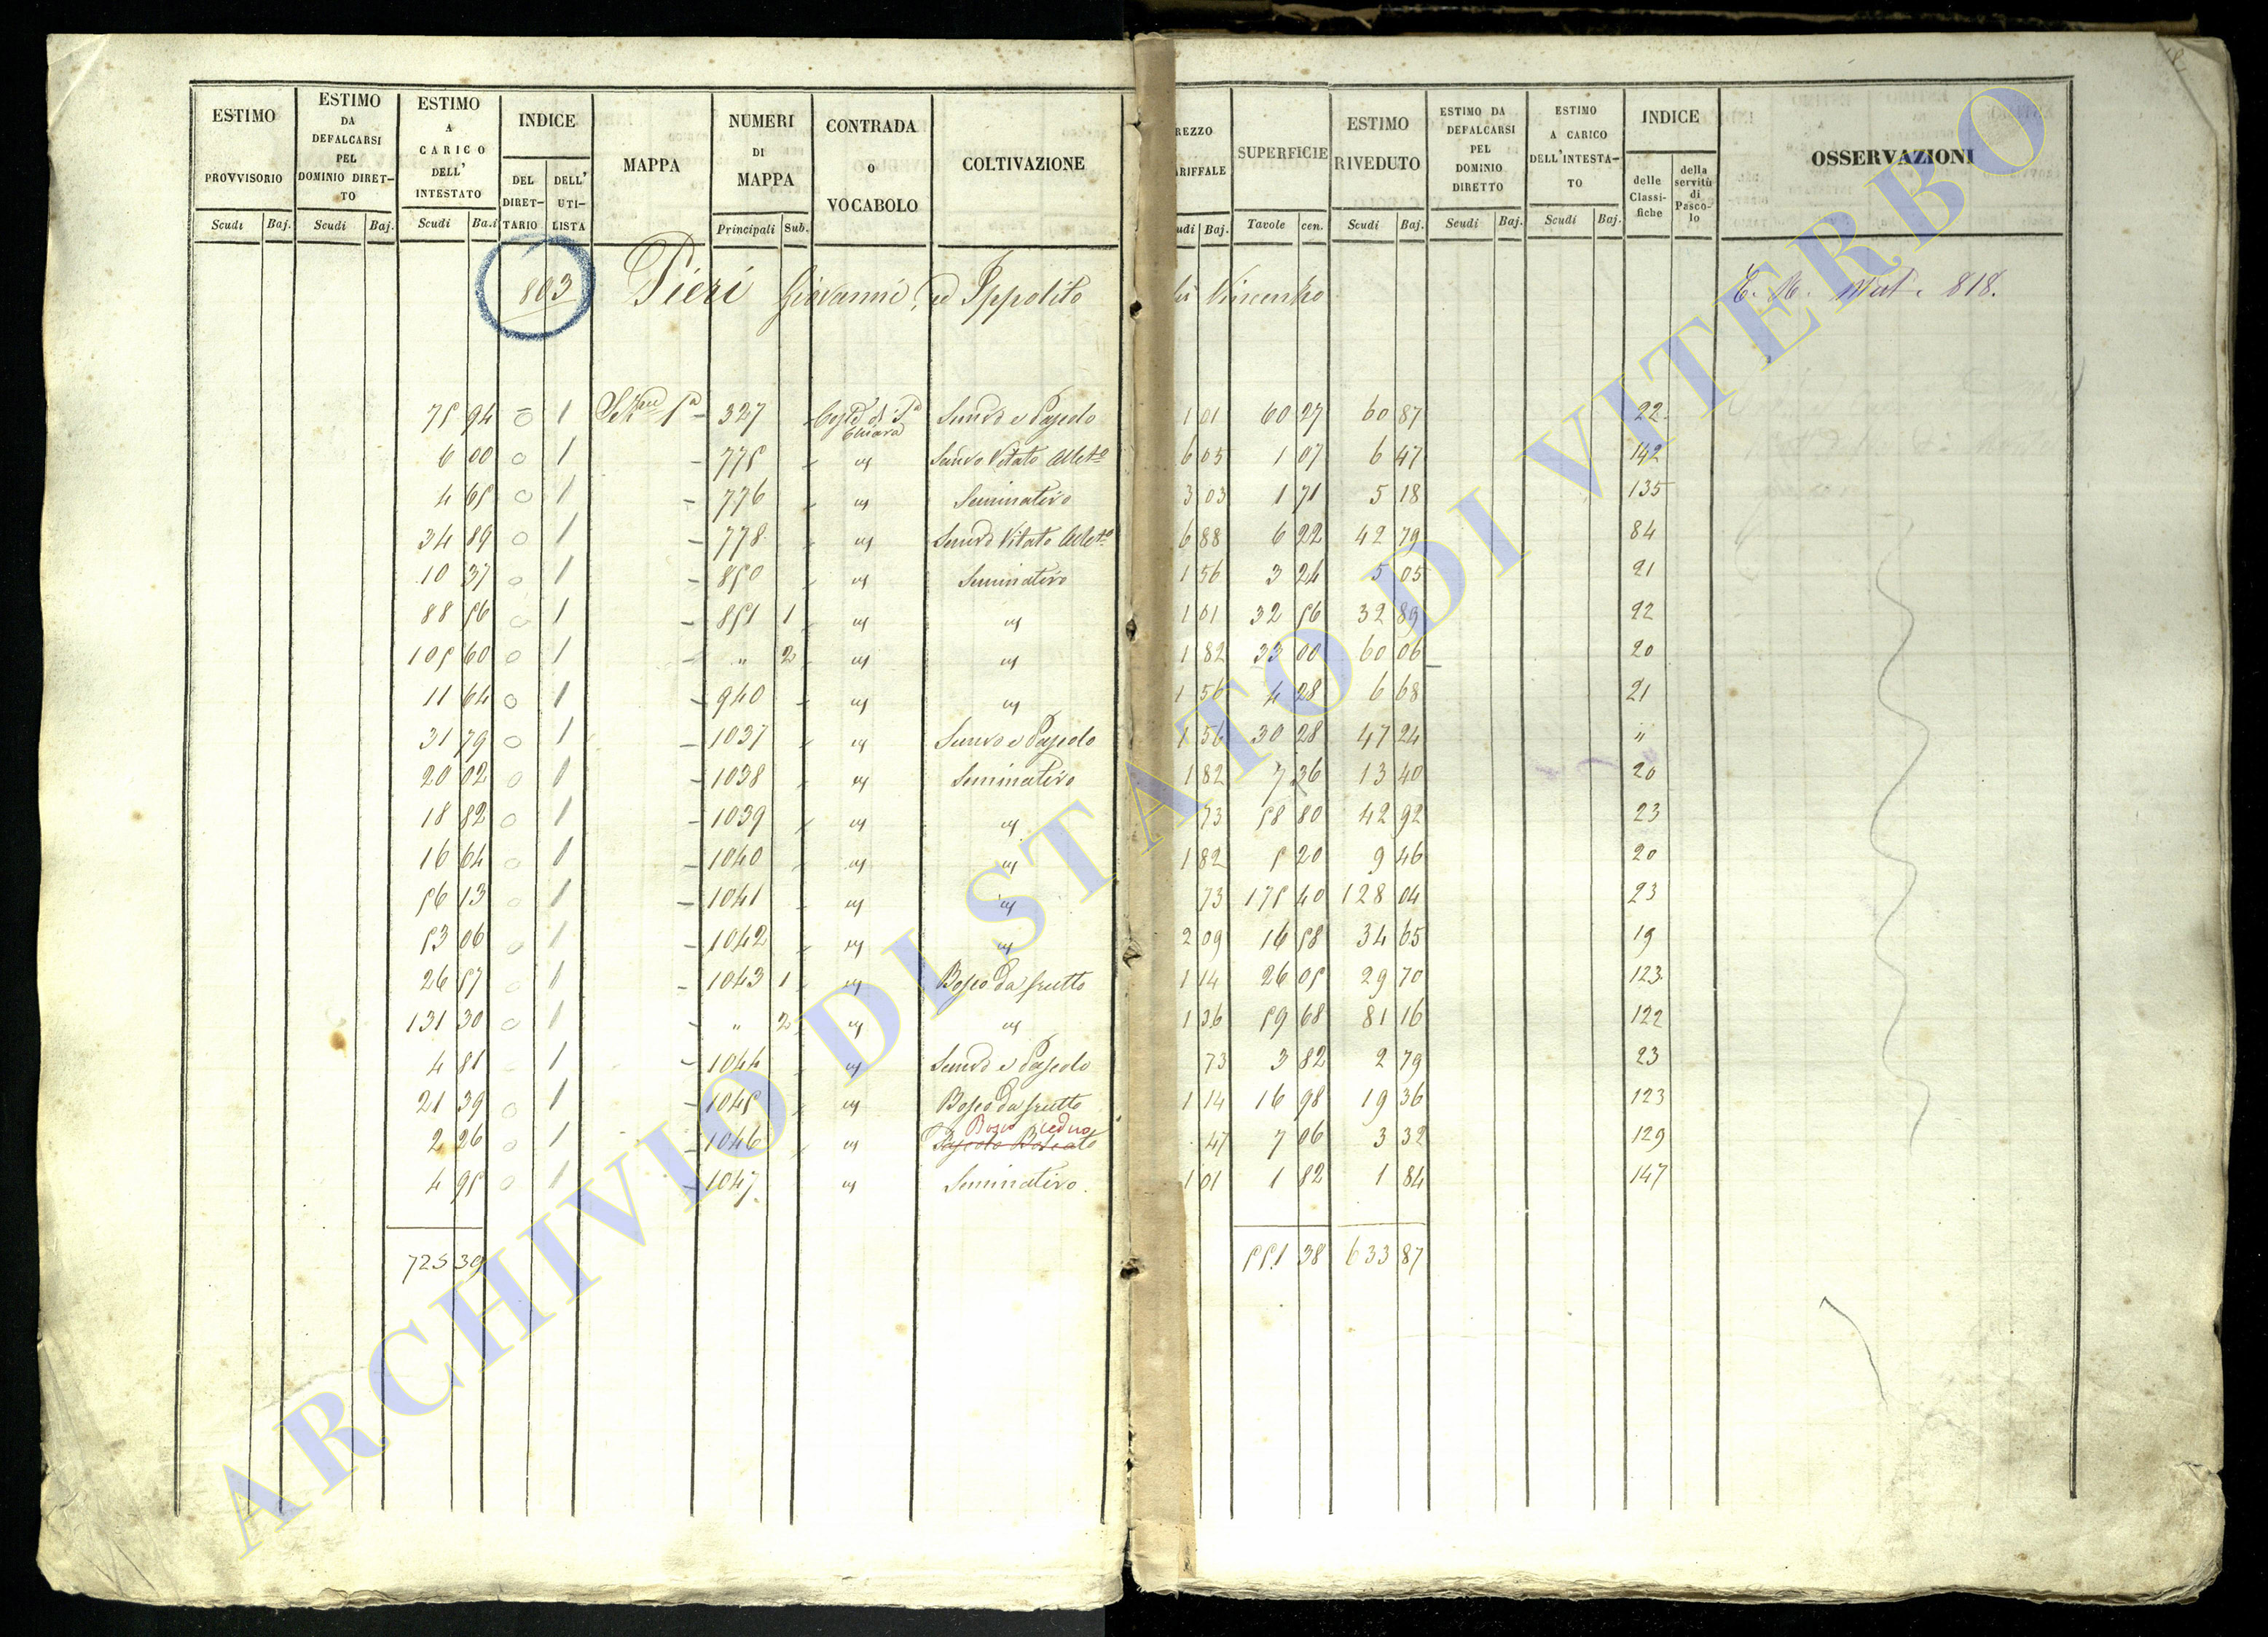 ESTIMO PROVVISORIO | ESTIMO DA DEFALCARSI PEL DOMINIO DIRET-TO | ESTIMO A CARICO DELL' INTESTATO | INDICE | MAPPA | NUMERI DI MAPPA | CONTRADA o VOCABOLO | COLTIVAZIONE | REZZO ARIFFALE | SUPERFICIE | ESTIMO RIVEDUTO | ESTIMO DA DEFALCARSI PEL DOMINIO DIRETTO | ESTIMO A CARICO DELL'INTESTA-TO | INDICE | OSSERVAZIONI
DEL DIRET-TARIO | DELL' UTI-LISTA | delle Classi-fiche | della servitù di Pasco-lo
Scudi | Baj. | Scudi | Baj. | Scudi | Ba.i | Principali | Sub. | udi | Baj. | Tavole | cen. | Scudi | Baj. | Scudi | Baj. | Scudi | Baj.
803 Pieri Giovanni, ed Ippolito Vincenzo 818.
75 94 0 1 327 Coste di Sa Chiara Semvo e Pascolo 1 01 60 27 60 87 22
6 00 0 1 775 " Semvo Vitato Albto 6 05 1 07 6 47 142
4 65 0 1 776 " Seminativo 3 03 1 71 5 18 135
34 89 0 1 778 " Semvo Vitato Albto 6 88 6 22 42 79 84
10 37 0 1 850 " Seminativo 1 56 3 24 5 05 21
88 56 0 1 851 1 " " 1 01 32 56 32 89 22
105 60 0 1 " 2 " " 1 82 33 00 60 06 20
11 64 0 1 940 " " 1 56 4 28 6 68 21
31 79 0 1 1037 " Semvo e Pascolo 1 56 30 28 47 24 "
20 02 0 1 1038 " Seminativo 1 82 7 36 13 40 20
18 82 0 1 1039 " " 73 58 80 42 92 23
16 64 0 1 1040 " " 1 82 5 20 9 46 20
56 13 0 1 1041 " " 73 175 40 128 04 23
53 06 0 1 1042 " " 2 09 16 58 34 65 19
26 57 0 1 1043 1 " Bosco da frutto 1 14 26 05 29 70 123
131 30 0 1 " 2 " " 1 36 59 68 81 16 122
4 81 1 1044 " Semvo e Pascolo 73 3 82 2 79 23
21 39 0 1 1045 " Bosco da frutto 1 14 16 98 19 36 123
Bosco ceduo
2 26 0 1 1046 " Pascolo Boscato 47 7 06 3 32 129
4 95 0 1 1047 " Seminativo 1 01 1 82 1 84 147
725 39 551 38 633 87
ARCHIVIO DI STATO DI VITERBO